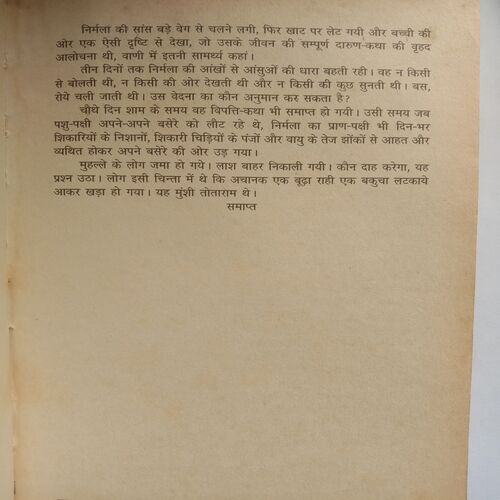 निर्मला की सांस बड़े वेग से चलने लगी, फिर खाट पर लेट गयी और बच्ची की
ओर एक ऐसी दृष्टि से देखा, जो उसके जीवन की सम्पूर्ण दारुण-कथा की वृहद
आलोचना थी, वाणी में इतनी सामर्थ्य कहां।
तीन दिनों तक निर्मला की आंखों से आंसुओं की धारा बहती रही। वह न किसी
से बोलती थी, न किसी की ओर देखती थी और न किसी की कुछ सुनती थी। बस,
रोये चली जाती थी। उस वेदना का कौन अनुमान कर सकता है?
चौथे दिन शाम के समय वह विपत्ति-कथा भी समाप्त हो गयी। उसी समय जब
पशु-पक्षी अपने-अपने बसेरे को लौट रहे थे, निर्मला का प्राण-पक्षी भी दिन-भर
शिकारियों के निशानों, शिकारी चिड़ियों के पंजों और वायु के तेज झोंकों से आहत और
व्यथित होकर अपने बसेरे की ओर उड़ गया।
मुहल्ले के लोग जमा हो गये। लाश बाहर निकाली गयी। कौन दाह करेगा, यह
प्रश्न उठा। लोग इसी चिन्ता में थे कि अचानक एक बूढ़ा राही एक बकुचा लटकाये
आकर खड़ा हो गया। यह मुंशी तोताराम थे।
समाप्त